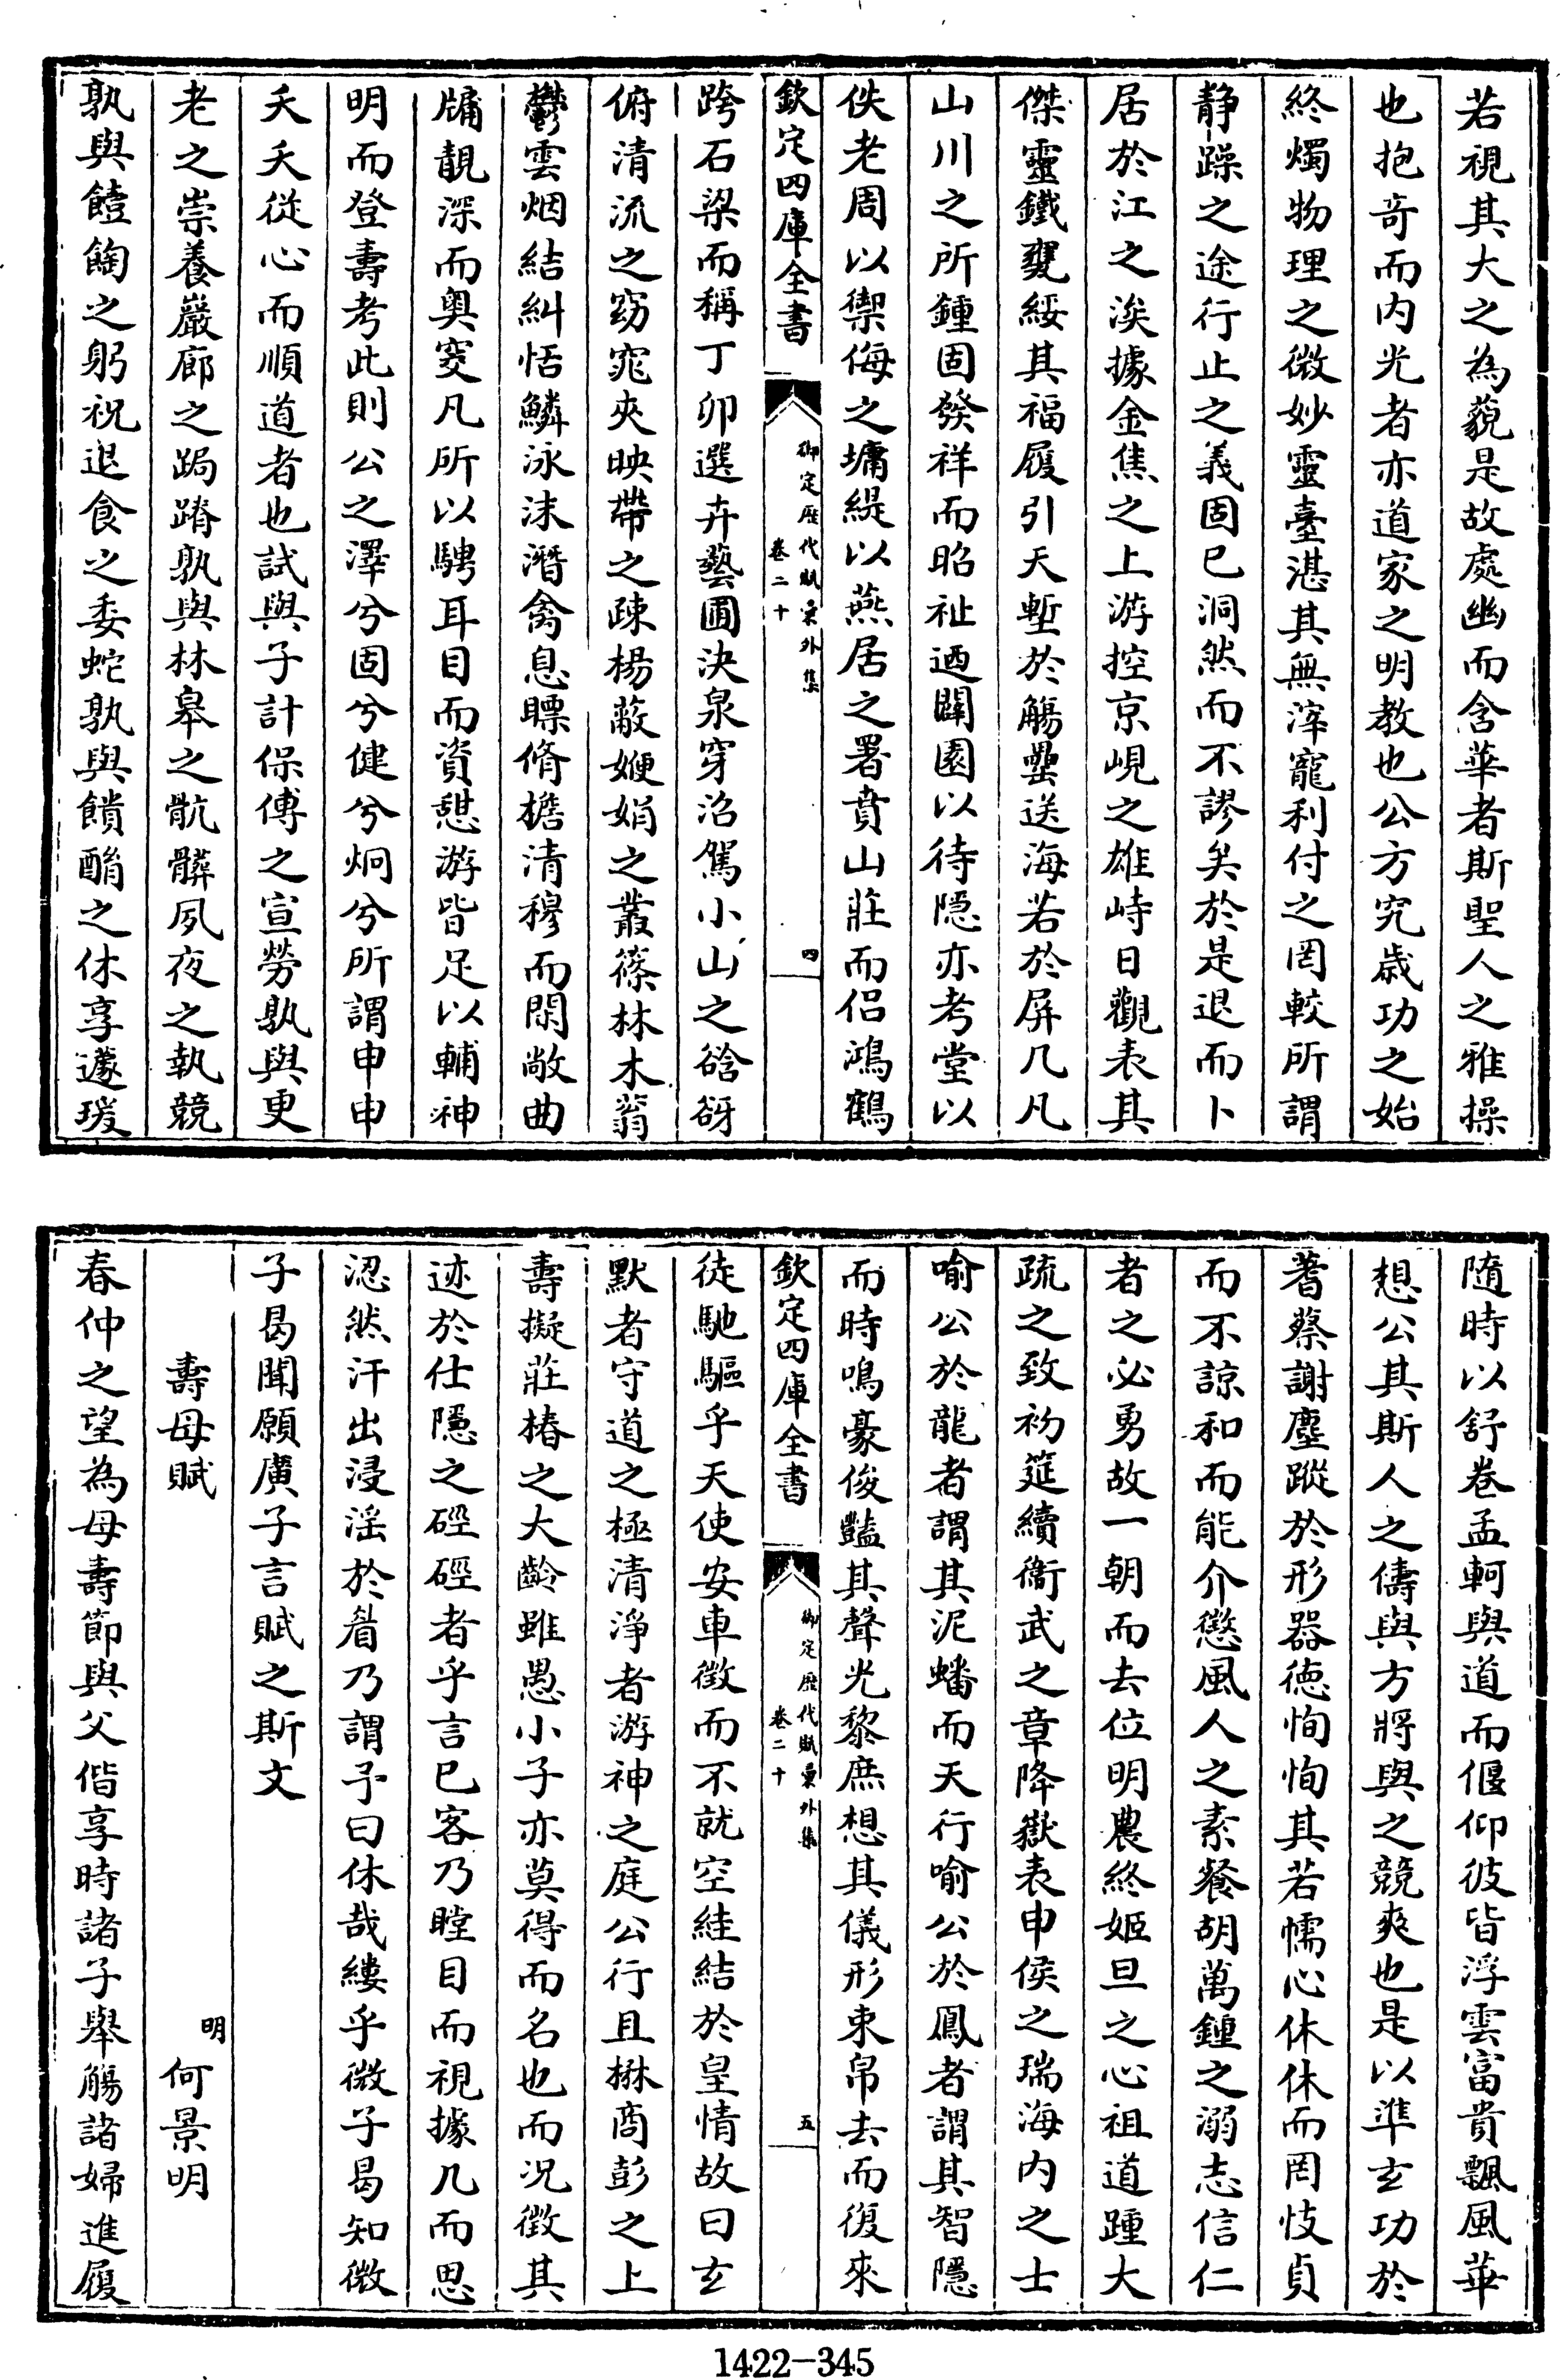 若視其大之為藐是故處幽而含華者斯聖人之雅操
也抱竒而内光者亦道家之明教也公方究歳功之始
終燭物理之微妙靈臺湛其無滓寵利付之罔較所謂
静躁之途行止之義固已洞然而不謬矣於是退而卜
居於江之涘據金焦之上游控京峴之雄峙日觀表其
傑靈鐵甕綏其福履引天塹於觴罍送海若於屏几凡
山川之所鍾固發祥而昭祉迺闢園以待隠亦考堂以
佚老周以禦侮之墉緹以燕居之署賁山莊而侣鴻鶴
欽定四庫全書
御定歴代賦彙外集
卷二十
四
跨石梁而稱丁卯選卉藝圃決泉穿沼駕小山之谽谺
俯清流之窈窕夾映帶之疎楊蔽㛹娟之叢篠林木蓊
鬱雲烟結糾恬鱗泳沬潛禽息瞟脩檐清穆而閑敞曲
牖靚深而奥窔凡所以騁耳目而資憇游皆足以輔神
明而登壽考此則公之澤兮固兮健兮炯兮所謂申申
夭夭從心而順道者也試與子計保傅之宣勞孰與更
老之崇養巖廊之跼蹐孰與林皋之骯髒夙夜之執競
孰與饎餉之躬祝退食之委蛇孰與饋酳之休享蘧瑗
隨時以舒卷孟軻與道而偃仰彼皆浮雲富貴飄風華
想公其斯人之儔與方將與之競爽也是以準玄功於
蓍蔡謝塵蹤於形器徳恂恂其若懦心休休而罔忮貞
而不諒和而能介懲風人之素餐胡萬鍾之溺志信仁
者之必勇故一朝而去位明農終姬旦之心祖道踵大
疏之致初筵續衞武之章降嶽表申侯之瑞海内之士
喻公於龍者謂其泥蟠而天行喻公於鳳者謂其智隱
而時鳴豪俊豔其聲光黎庶想其儀形束帛去而復來
欽定四庫全書
御定歴代賦彙外集
卷二十
五
徒馳驅乎天使安車徴而不就空絓結於皇情故曰玄
默者守道之極清淨者游神之庭公行且楙商彭之上
壽擬莊椿之大齡雖愚小子亦莫得而名也而况徴其
迹於仕隱之硜硜者乎言已客乃瞠目而視據几而思
涊然汗出浸淫於眉乃謂予曰休哉縷乎微子曷知微
子曷聞願廣子言賦之斯文
壽母賦
明
何景明
春仲之望為母壽節與父偕享時諸子舉觴諸婦進履
1422-345